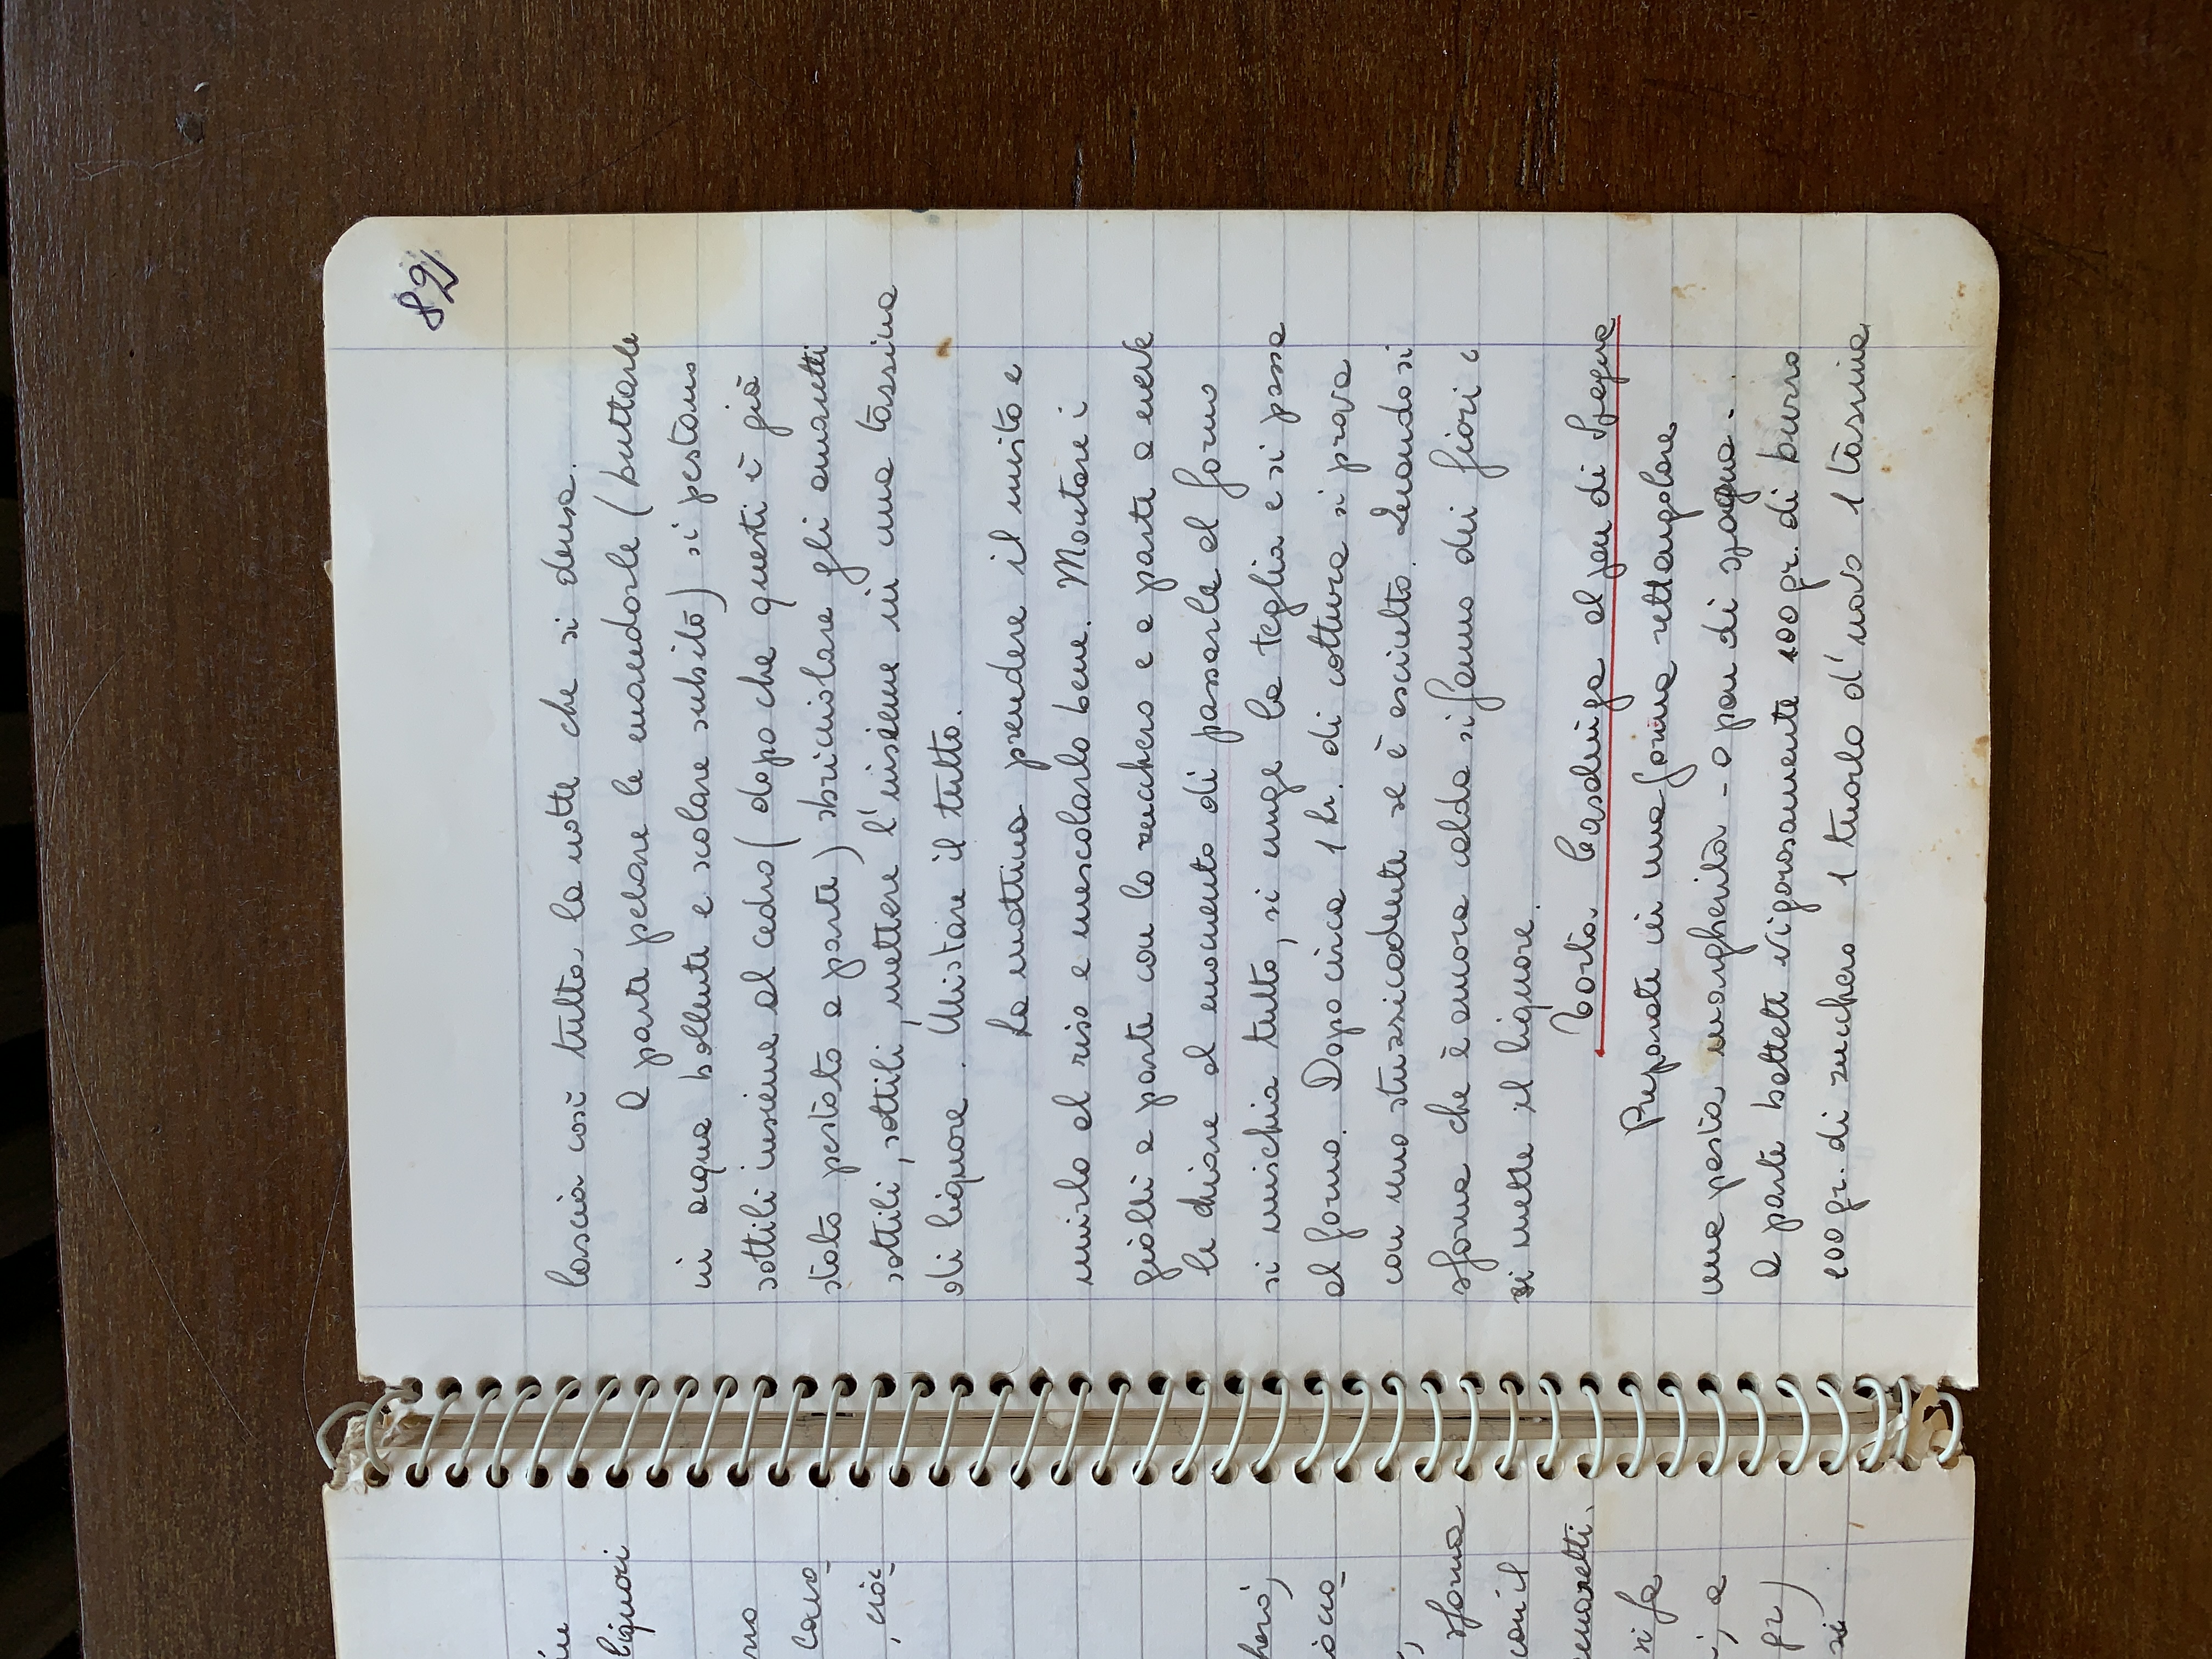 82
lascia così tutta la notte che si densa.
A parte pelare le mandorle (buttarle
in acqua bollente e scolare subito) si pestano
sottili insieme al cedro (dopo che questi è già
stato pestato a parte) sbriciolare gli amaretti
sottili, sottili, mettere l'insieme in una tassina
di liquore. Mistare il tutto.
La mattina prendere il misto e
unirlo al riso e mescolarlo bene. Montare i
gialli a parte con lo zucchero e a parte a neve
le chiare al momento di passarle al forno
si mischia tutto, si unge la teglia e si passa
al forno. Dopo circa 1 h. di cottura si prova
con uno stuzzicadente se è asciutto. Quando si
sforna che è ancora calda si fanno dei fiori e
si mette il liquore.
Torta Casalinga al pan di Spagna
Preparate in una forma rettangolare
una pasta margherita - o pan di spagna -
A parte battete vigorosamente 100 gr. di burro
100 gr. di zucchero 1 tuorlo d'uovo 1 tassina
liquori
sforna
con il
amaretti.
si fa
; a
gr)
si